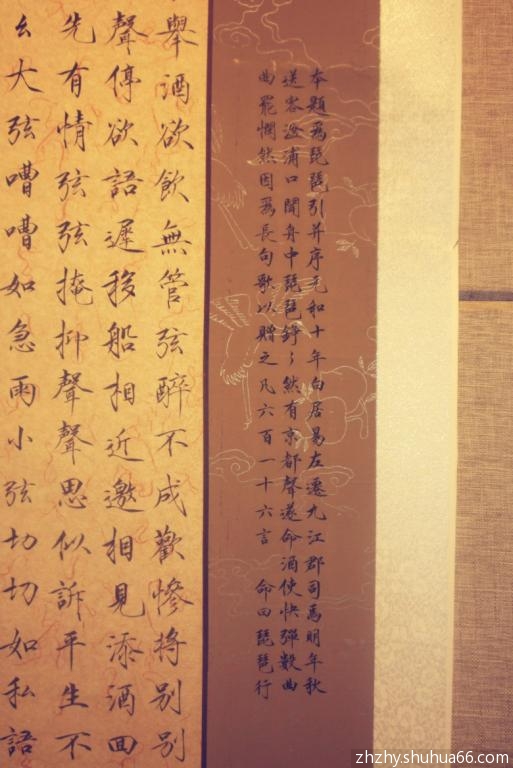 本題為琵琶引并序元和十年白居易左遷九江郡司馬明年秋
送客湓浦口聞舟中琵琶錚々然有京都聲遂命酒使快彈數曲
曲罷憫然因為長句歌以贈之凡六百一十六言 命曰琵琶行
舉酒欲飲無管弦醉不成歡慘將別別
聲停欲語遲移船相近邀相見添酒回
先有情弦弦掩抑聲聲思似訴平生不
幺大弦嘈嘈如急雨小弦切切如私語
zhzhy.shuhua66.com